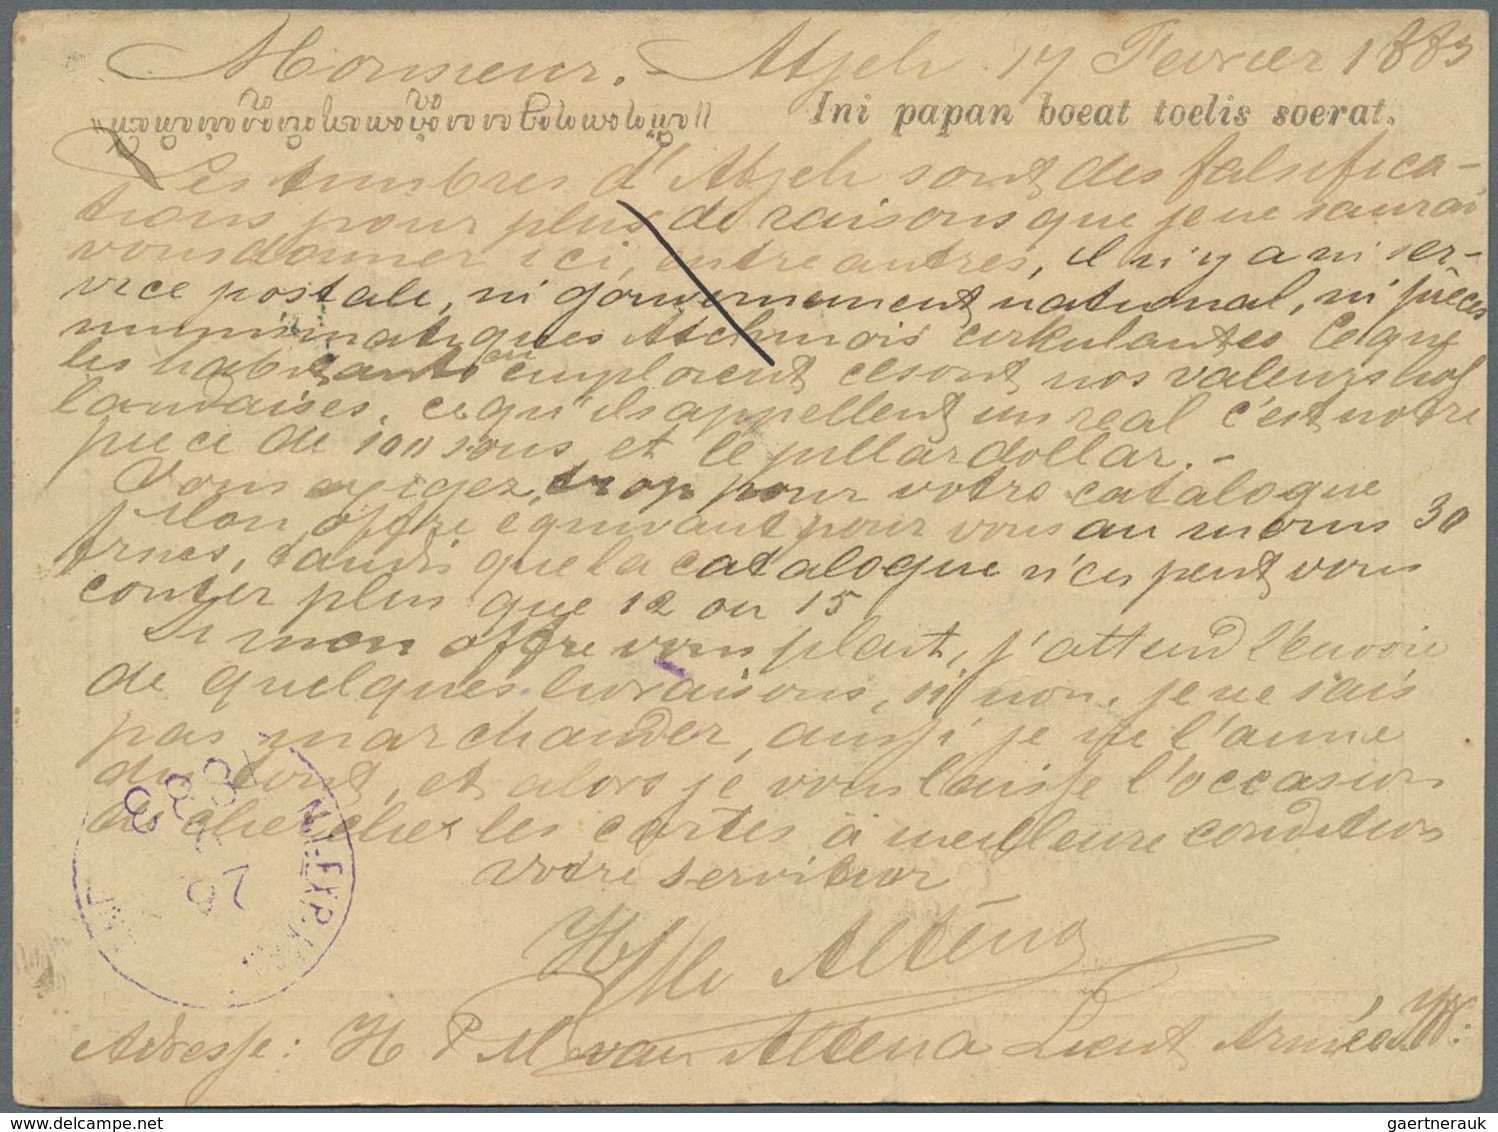 Monsieur. – Atjeh 17 Fevrier 1883
Ini papan boeat toelis soerat.
Les timbres d'Atjeh sont des falsifica-
tions pour plus de raisons que je ne saurai
vous donner ici, entre autres, il n'y a ni ser-
vice postale, ni gouvernement national, ni pièces
numimatiques Atchinois cirkulantes Ce que
les habitants emploient ce sont nos valeurs hol
landaises, ce qu'ils appellent un real c'est notre
piece de 100 sous et le pillardollar. –
Vous exigez trop pour votre catalogue
Mon offre equivaut pour vous au moins 30
frncs, tandis que la catalogue n'ces peut vous
couter plus que 12 ou 15
Si mon offre vous plait, j'attend l'envoie
de quelques livraisons, si non, je ne sais
pas marchander, aussi je ne l'aime
du tout, et alors je vous laisse l'occasion
de chercher les cartes à meilleure condition
Votre serviteur
Altena
Adresse: H P M van Altena Lieut Armée
N.I. EXP.
gaertnerauk